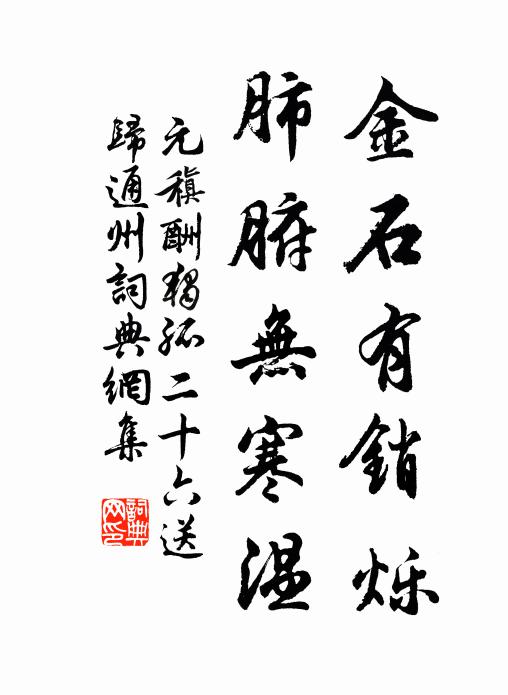 金石有銷烁
肺腑無寒温
元稹酬獨孤二十六送
歸通州詞典網集
詞典
网印